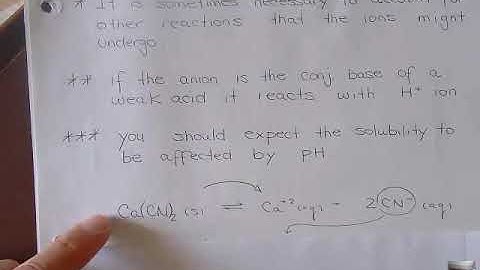 * It is sometimes necessary to account for
other reactions that the ions might
undergo
** if the anion is the conj. base of a
weak acid it reacts with H⁺ ion
*** you should expect the solubility to
be affected by pH
Ca(CN)₂ (s) ⇌ Ca⁺² (aq) - 2 CN⁻ (aq)